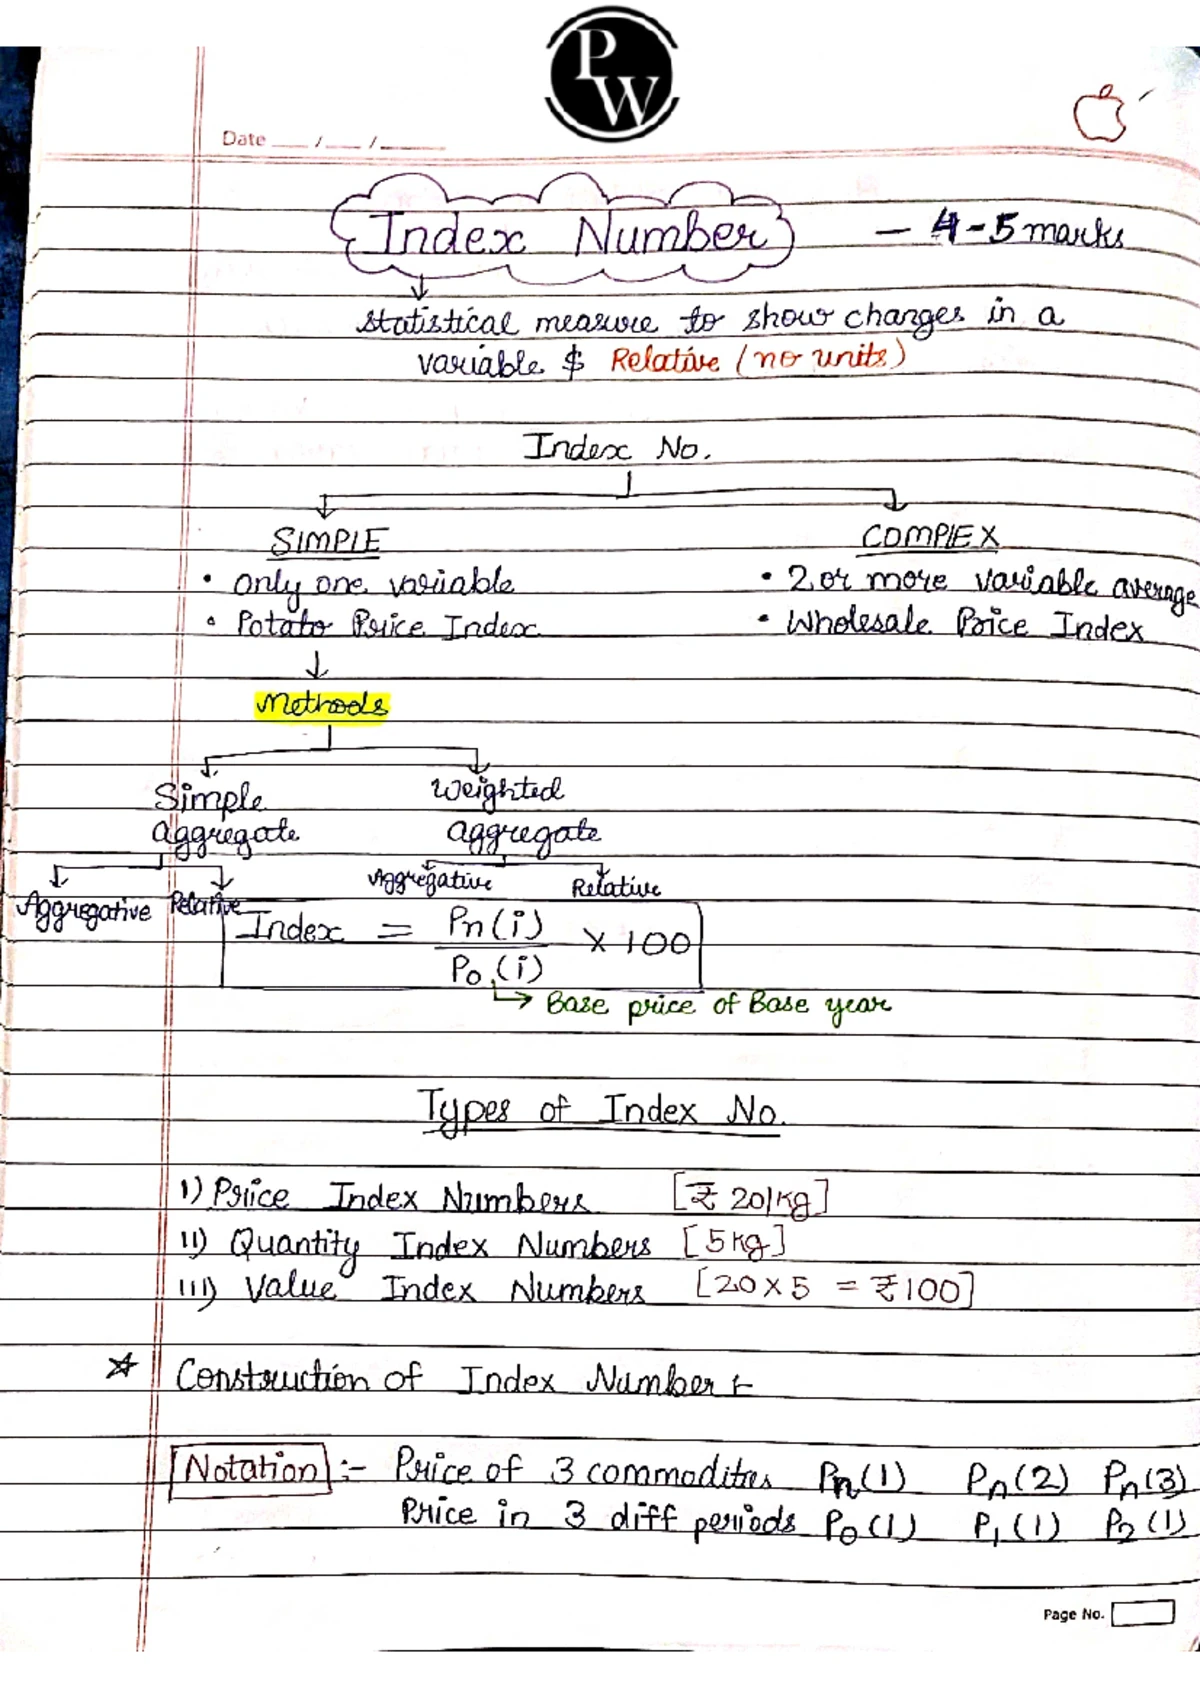 PW
Date ___ / ___ / ______
Index Number — 4-5 marks
Statistical measure to show changes in a
variable $ Relative (no units)
Index No.
SIMPLE COMPLEX
• only one variable • 2 or more variable average
• Potato Price Index • Wholesale Price Index
Methods
Simple Weighted
aggregate aggregate
Aggregative Relative Aggregative Relative
Index = Pn(i) / P0(i) × 100
Base price of Base year
Types of Index No.
I) Price Index Numbers [₹ 20/kg]
II) Quantity Index Numbers [5kg]
III) Value Index Numbers [20 × 5 = ₹100]
☆ Construction of Index Number :-
Notation :- Price of 3 commodities Pn(1) Pn(2) Pn(3)
Price in 3 diff periods P0(1) P1(1) P2(1)
Page No.